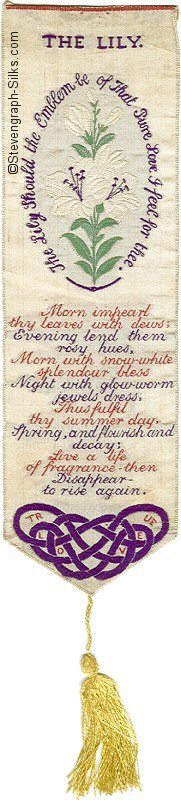 THE LILY.
The Lily Should the Emblem be of That Pure Love I feel for thee.
Morn impearl
thy leaves with dews;
Evening lend them
rosy hues,
Morn with snow-white
splendour bless
Night with glow-worm
jewels dress,
Thus fulfil
thy summer day.
Spring, and flourish and
decay;
Live a life
of fragrance-then
Disappear-
to rise again.
TRUE
LOVE
©Stevengraph-Silks.com